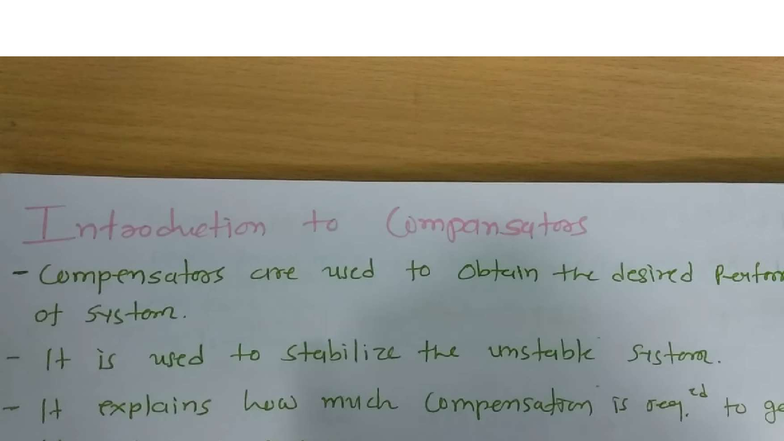 Introduction to Compansators
- Compensators are used to obtain the desired Perfor
of system.
- It is used to stabilize the unstable system.
- It explains how much compensation is req.ed to ge